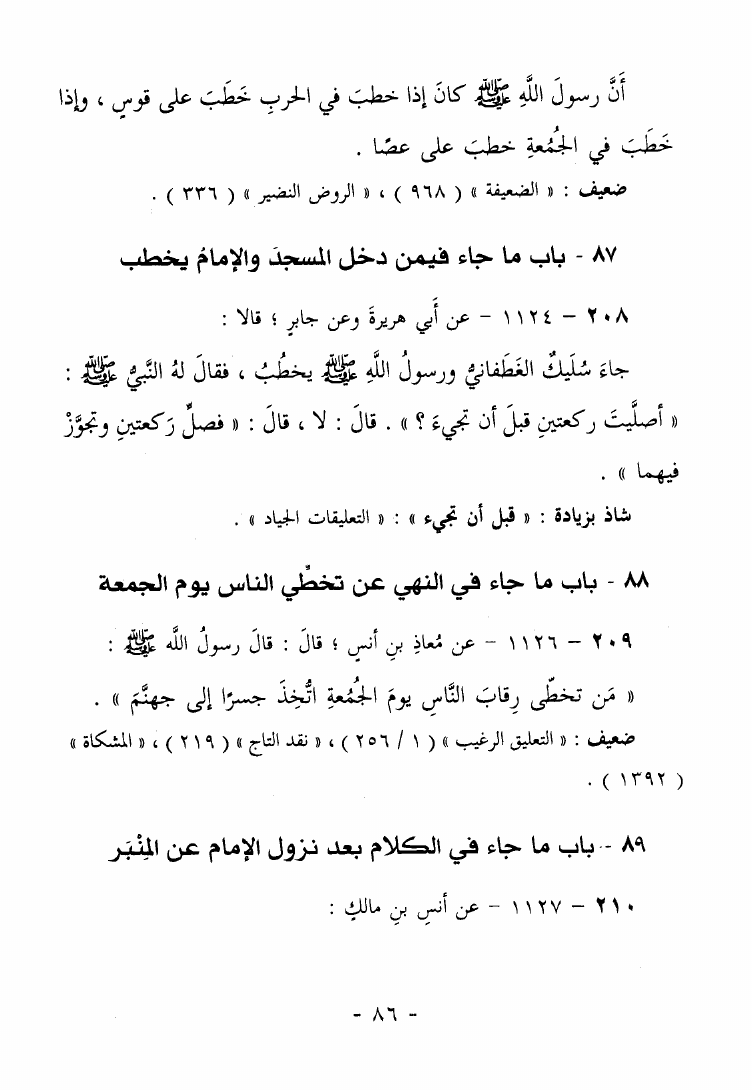 أَنَّ رسولَ اللَّهِ ﷺ كانَ إذا خطبَ في الحربِ خَطَبَ على قوسٍ ، وإذا
خَطَبَ في الجُمُعةِ خطبَ على عصًا .
ضعيف : « الضعيفة » ( ٩٦٨ ) ، « الروض النضير » ( ٣٣٦ ) .
٨٧ - باب ما جاء فيمن دخل المسجدَ والإمامُ يخطب
٢٠٨ – ١١٢٤ – عن أَبي هريرةَ وعن جابرٍ ؛ قالا :
جاءَ سُلَيكٌ الغَطَفانيُّ ورسولُ اللَّهِ ﷺ يخطُبُ ، فقالَ لهُ النَّبيُّ ﷺ :
« أصلَّيتَ ركعتينِ قبلَ أن تجيءَ ؟ » . قالَ : لا ، قالَ : « فصلِّ رَكعتينِ وتجوَّزْ
فيهما » .
شاذ بزيادة : « قبل أن تجيء » : « التعليقات الجياد » .
٨٨ - باب ما جاء في النهي عن تخطِّي الناس يوم الجمعة
٢٠٩ – ١١٢٦ – عن مُعاذِ بنِ أنسٍ ؛ قالَ : قالَ رسولُ اللَّه ﷺ :
« مَن تخطَّى رِقابَ النَّاسِ يومَ الجُمُعةِ اتُّخِذَ جسرًا إلى جهنَّمَ » .
ضعيف : « التعليق الرغيب » ( ١ / ٢٥٦ ) ، « نقد التاج » ( ٢١٩ ) ، « المشكاة »
( ١٣٩٢ ) .
٨٩ - باب ما جاء في الكلام بعد نزول الإمام عن المِنْبَر
٢١٠ – ١١٢٧ – عن أنسِ بنِ مالكٍ :
- ٨٦ -